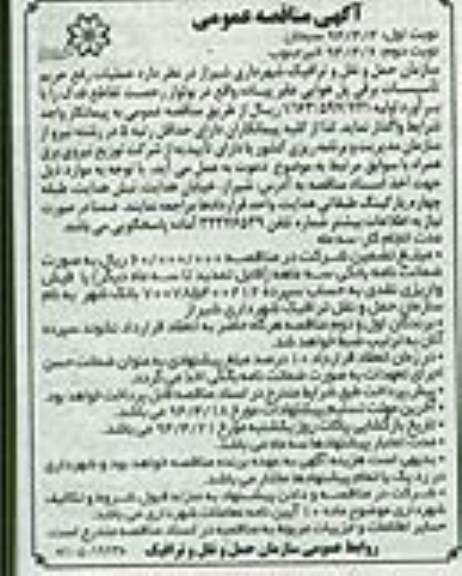 آگهی مناقصه عمومی
نوبت اول:
نوبت دوم:
سازمان حمل و نقل و ترافیک شهرداری شیراز در نظر دارد عملیات رفع حریم
تاسیسات برقی پل هوایی عابر پیاده واقع در بولوار رحمت تقاطع فدک را با
ریال از طریق مناقصه عمومی به پیمانکار واجد
شرایط واگذار نماید. لذا از کلیه پیمانکاران دارای حداقل رتبه ۵ در رشته نیرو از
سازمان مدیریت و برنامه ریزی کشور یا دارای تاییدیه از شرکت توزیع نیروی برق
همراه با سوابق مرتبط به موضوع دعوت به عمل می آید، با توجه به موارد ذیل
جهت اخذ اسناد مناقصه به آدرس: شیراز، خیابان هدایت، نبش هدایت، طبقه
چهارم پارکینگ طبقاتی هدایت واحد قراردادها مراجعه نمایند. ضمنا در صورت
نیاز به اطلاعات بیشتر شماره تلفن آماده پاسخگویی می باشد.
مدت انجام کار: سه ماه
• مبلغ تضمین شرکت در مناقصه ریال به صورت
ضمانت نامه بانکی سه ماهه (قابل تمدید تا سه ماه دیگر) یا فیش
واریزی نقدی به حساب سپرده بانک شهر به نام
سازمان حمل و نقل ترافیک شهرداری شیراز
• برندگان اول و دوم مناقصه هرگاه حاضر به انعقاد قرارداد نشوند سپرده
آنان به ترتیب ضبط خواهد شد.
• در زمان انعقاد قرارداد ۱۰ درصد مبلغ پیشنهادی به عنوان ضمانت حسن
اجرای تعهدات به صورت ضمانت نامه بانکی اخذ می گردد.
• پیش پرداخت طبق شرایط مندرج در اسناد مناقصه قابل پرداخت خواهد بود.
• آخرین مهلت تسلیم پیشنهادات مورخ می باشد.
• تاریخ بازگشایی پاکات روز یکشنبه مورخ می باشد.
• مدت اعتبار پیشنهادها سه ماه می باشد.
• بدیهی است هزینه آگهی به عهده برنده مناقصه خواهد بود و شهرداری
در رد یک یا تمام پیشنهادها مختار می باشد.
• شرکت در مناقصه و دادن پیشنهاد به منزله قبول شروط و تکالیف
شهرداری موضوع ماده ۱۰ آیین نامه معاملات شهرداری می باشد.
سایر اطلاعات و جزییات مربوط به مناقصه در اسناد مناقصه مندرج است.
روابط عمومی سازمان حمل و نقل و ترافیک